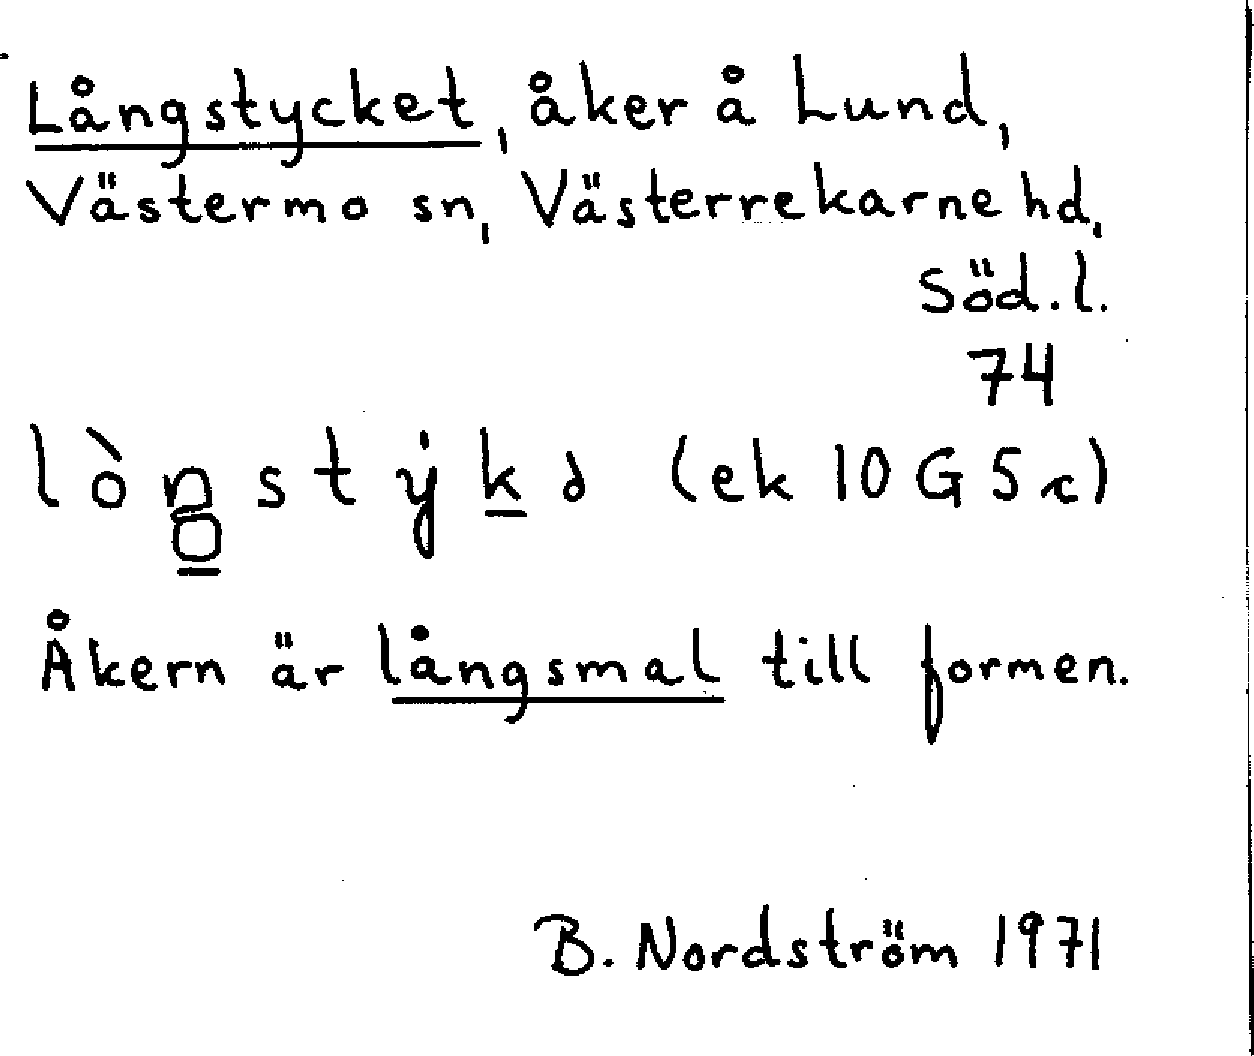 Långstycket, åker å Lund,
Västermo sn, Västerrekarne hd,
Söd.l.
74
lòŋstẏk̲ə (ek 10G5c)
Åkern är långsmal till formen.
B. Nordström 1971